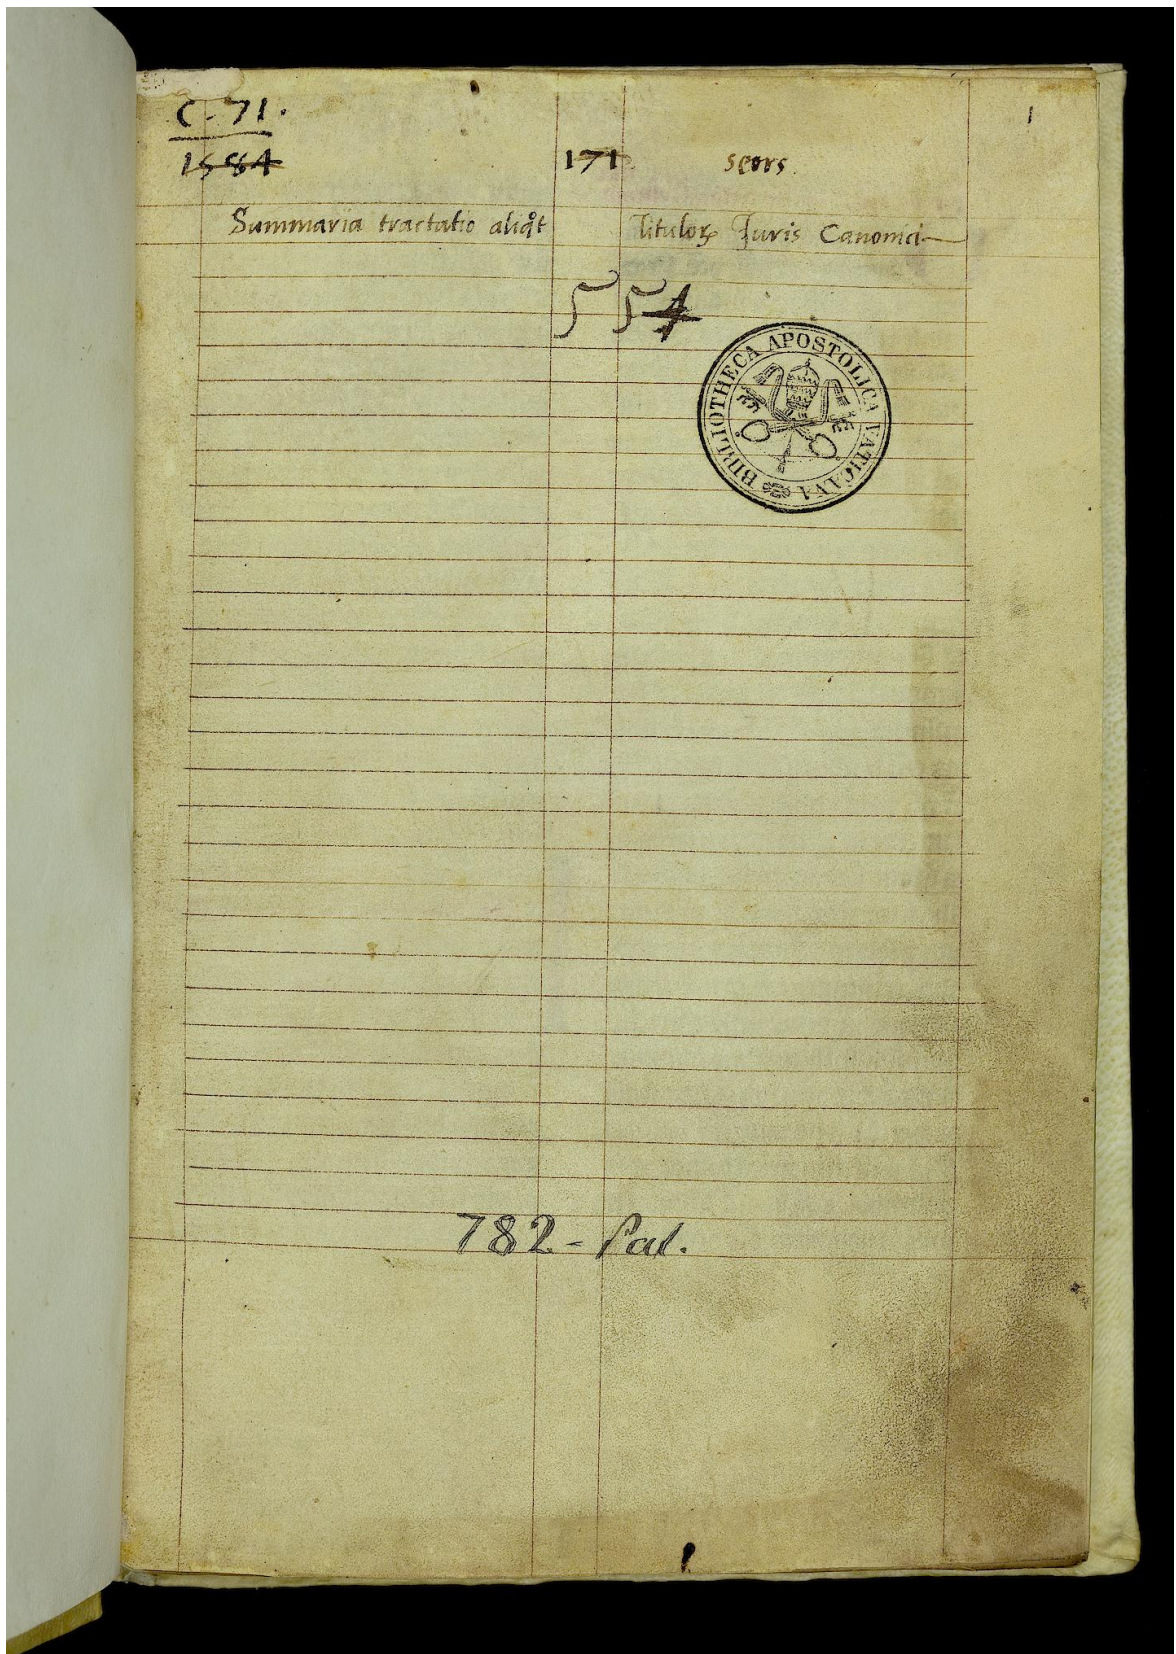 C. 71.
1
1584
171. seors.
Summaria tractatio aliqͦt Tituloꝝ Juris Canonici
554
BIBLIOTHECA APOSTOLICA VATICANA
782 - Pal.